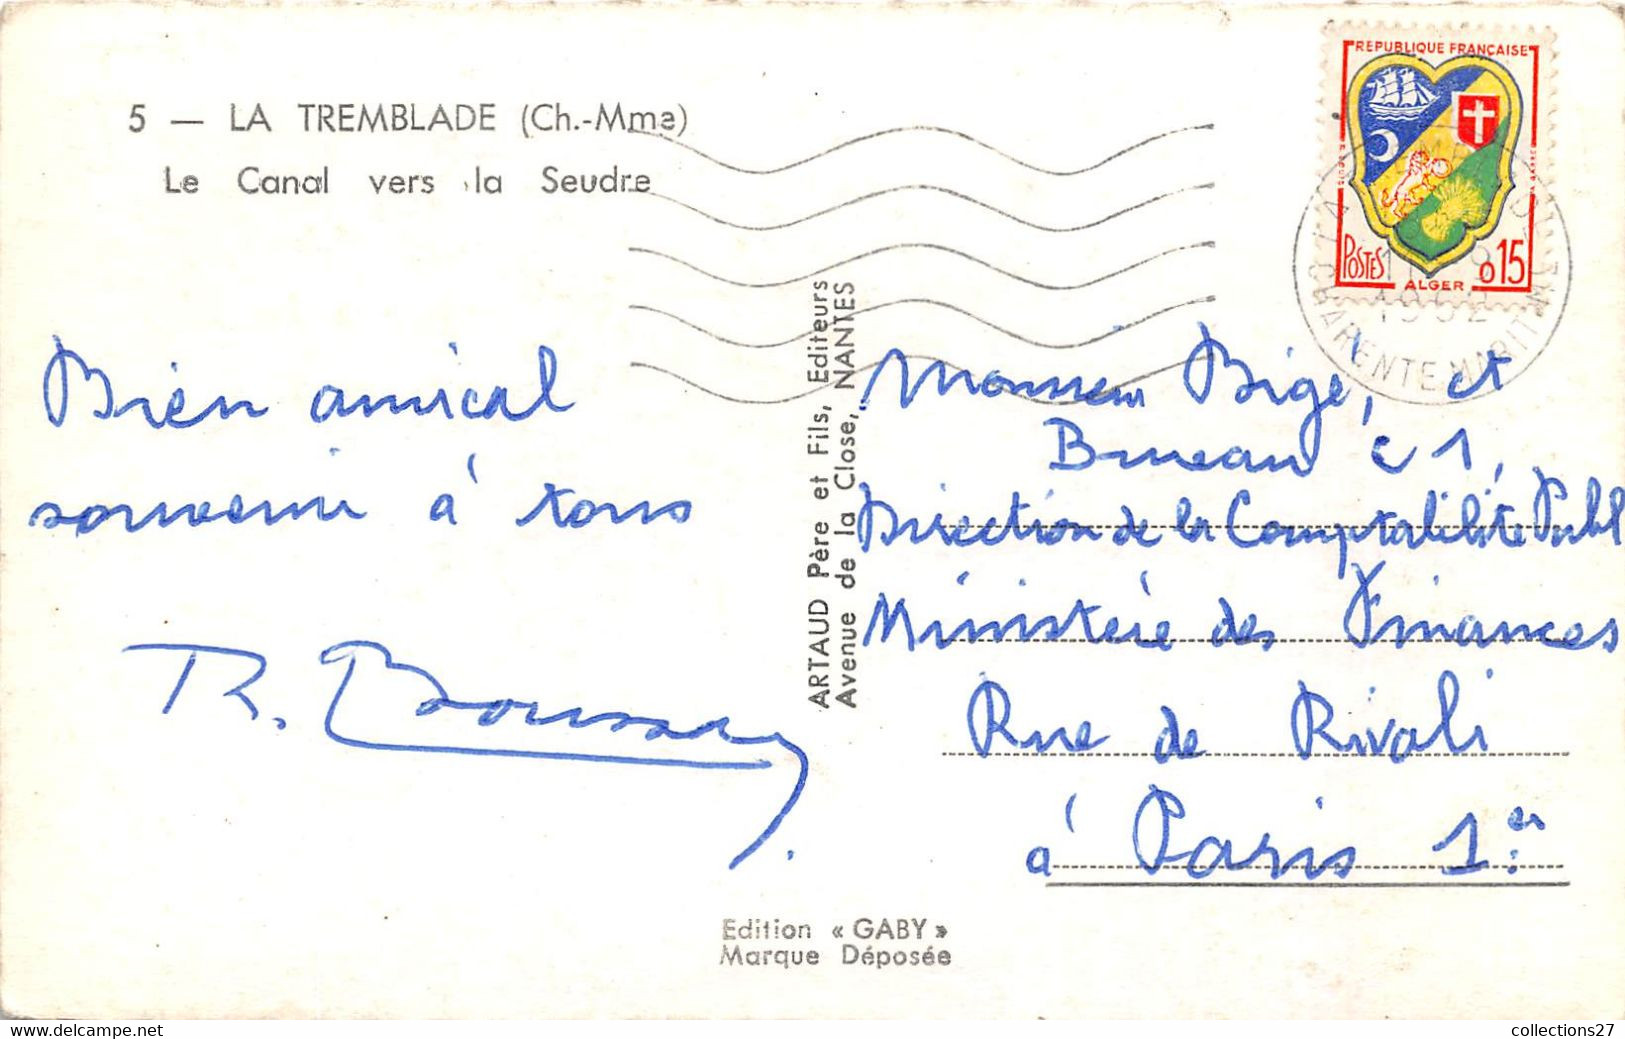 5 — LA TREMBLADE (Ch.-Mme)
Le Canal vers la Seudre
REPUBLIQUE FRANÇAISE
POSTES
ALGER
0 15
1962
CHARENTE MARITIME
Bien amical
souvenir à tous
R. Boussary
ARTAUD Père et Fils, Editeurs
Avenue de la Close, NANTES
Monsieur Bigé, et
Bureau C 1,
Direction de la Comptabilité Publ
Ministère des Finances
Rue de Rivoli
à Paris 1er
Edition « GABY »
Marque Déposée
collections27